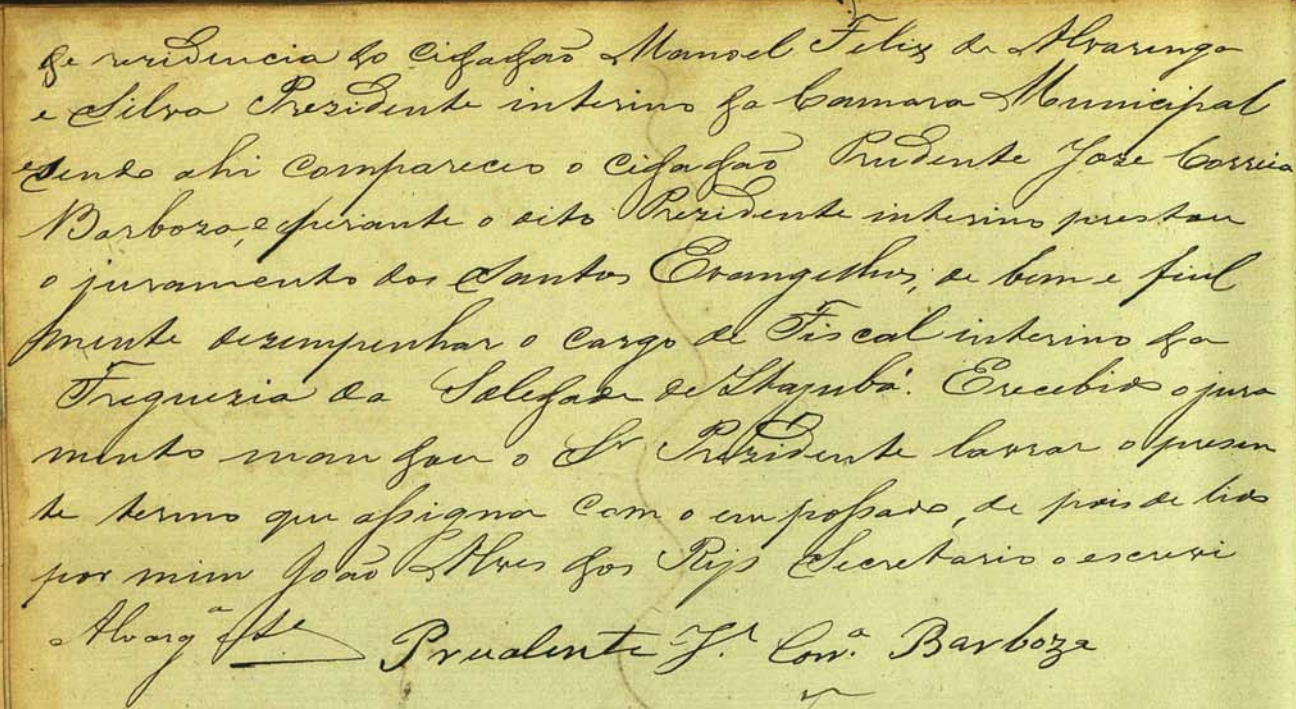 de rezidencia do cidadão Manoel Feliz de Alvarenga
e Silva Prezidente interino da Camara Municipal
e sendo ahi compareceo o cidadão Prudente Jose Correia
Barboza, e perante o dito Prezidente interino prestou
o juramento dos Santos Evangelhos, de bem e fiel
mente dezempenhar o cargo de Fiscal interino da
Freguezia da Soledade de Itajubá. E recebido o jura
mento mandou o Sr Prezidente lavrar o presen
te termo que assigna com o empossado, de pois de lido
por mim João Alves dos Reis Secretario o escrevi
Alvargª
Prudente J.e Corr.ª Barboza